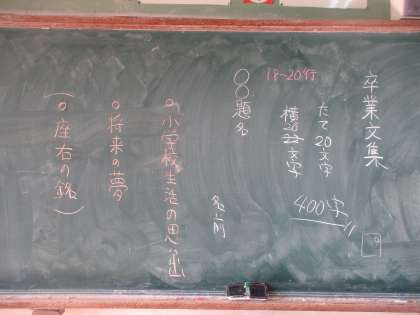 卒業文集
たて20文字
横20文字
400字
18〜20行
〇〇題名
名前
○小学校生活の思い出
○将来の夢
(○座右の銘)